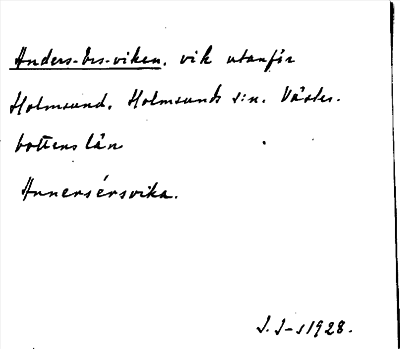 Anders-Ers-viken. vik utanför
Holmsund. Holmsunds s:n. Väster-
bottens län
Annersérsvika.
J. J-s 1928.